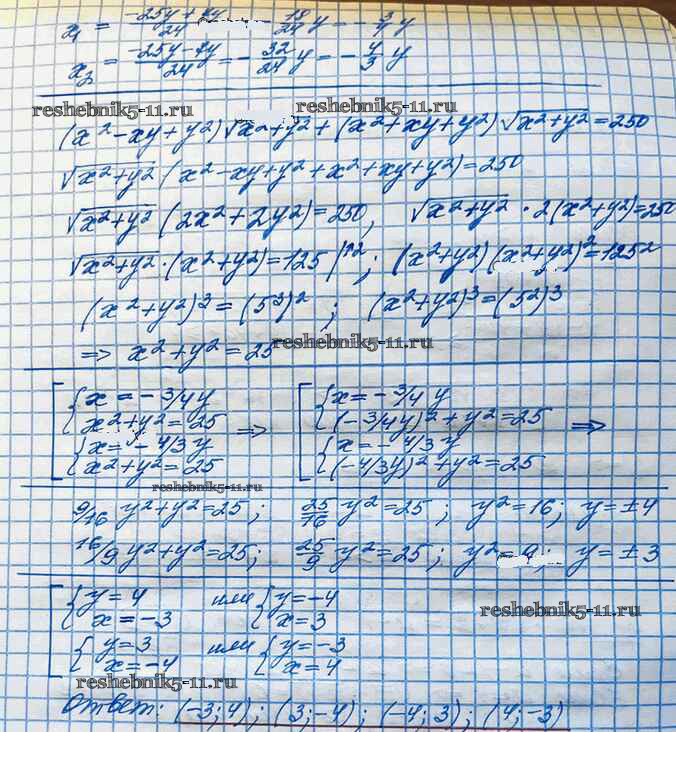 x₁ = (-25y + 7y)/24 = -18/24 y = -3/4 y
x₂ = (-25y - 7y)/24 = -32/24 y = -4/3 y
reshebnik5-11.ru reshebnik5-11.ru
(x² - xy + y²) √x² + y² + (x² + xy + y²) √x² + y² = 250
√x² + y² (x² - xy + y² + x² + xy + y²) = 250
√x² + y² (2x² + 2y²) = 250, √x² + y² · 2(x² + y²) = 250
√x² + y² · (x² + y²) = 125 |^2; (x² + y²)(x² + y²)² = 125²
(x² + y²)³ = (5³)²; (x² + y²)³ = (5²)³
=> x² + y² = 25 reshebnik5-11.ru
[ { x = -3/4 y [ { x = -3/4 y
x² + y² = 25 (-3/4 y)² + y² = 25
{ x = -4/3 y => { x = -4/3 y =>
x² + y² = 25 (-4/3 y)² + y² = 25
reshebnik5-11.ru
9/16 y² + y² = 25; 25/16 y² = 25; y² = 16; y = ±4
16/9 y² + y² = 25; 25/9 y² = 25; y² = 9; y = ±3
[ { y = 4 или { y = -4
x = -3 x = 3
reshebnik5-11.ru
{ y = 3 или { y = -3
x = -4 x = 4
reshebnik5-11.ru
Ответ: (-3; 4); (3; -4); (-4; 3); (4; -3)